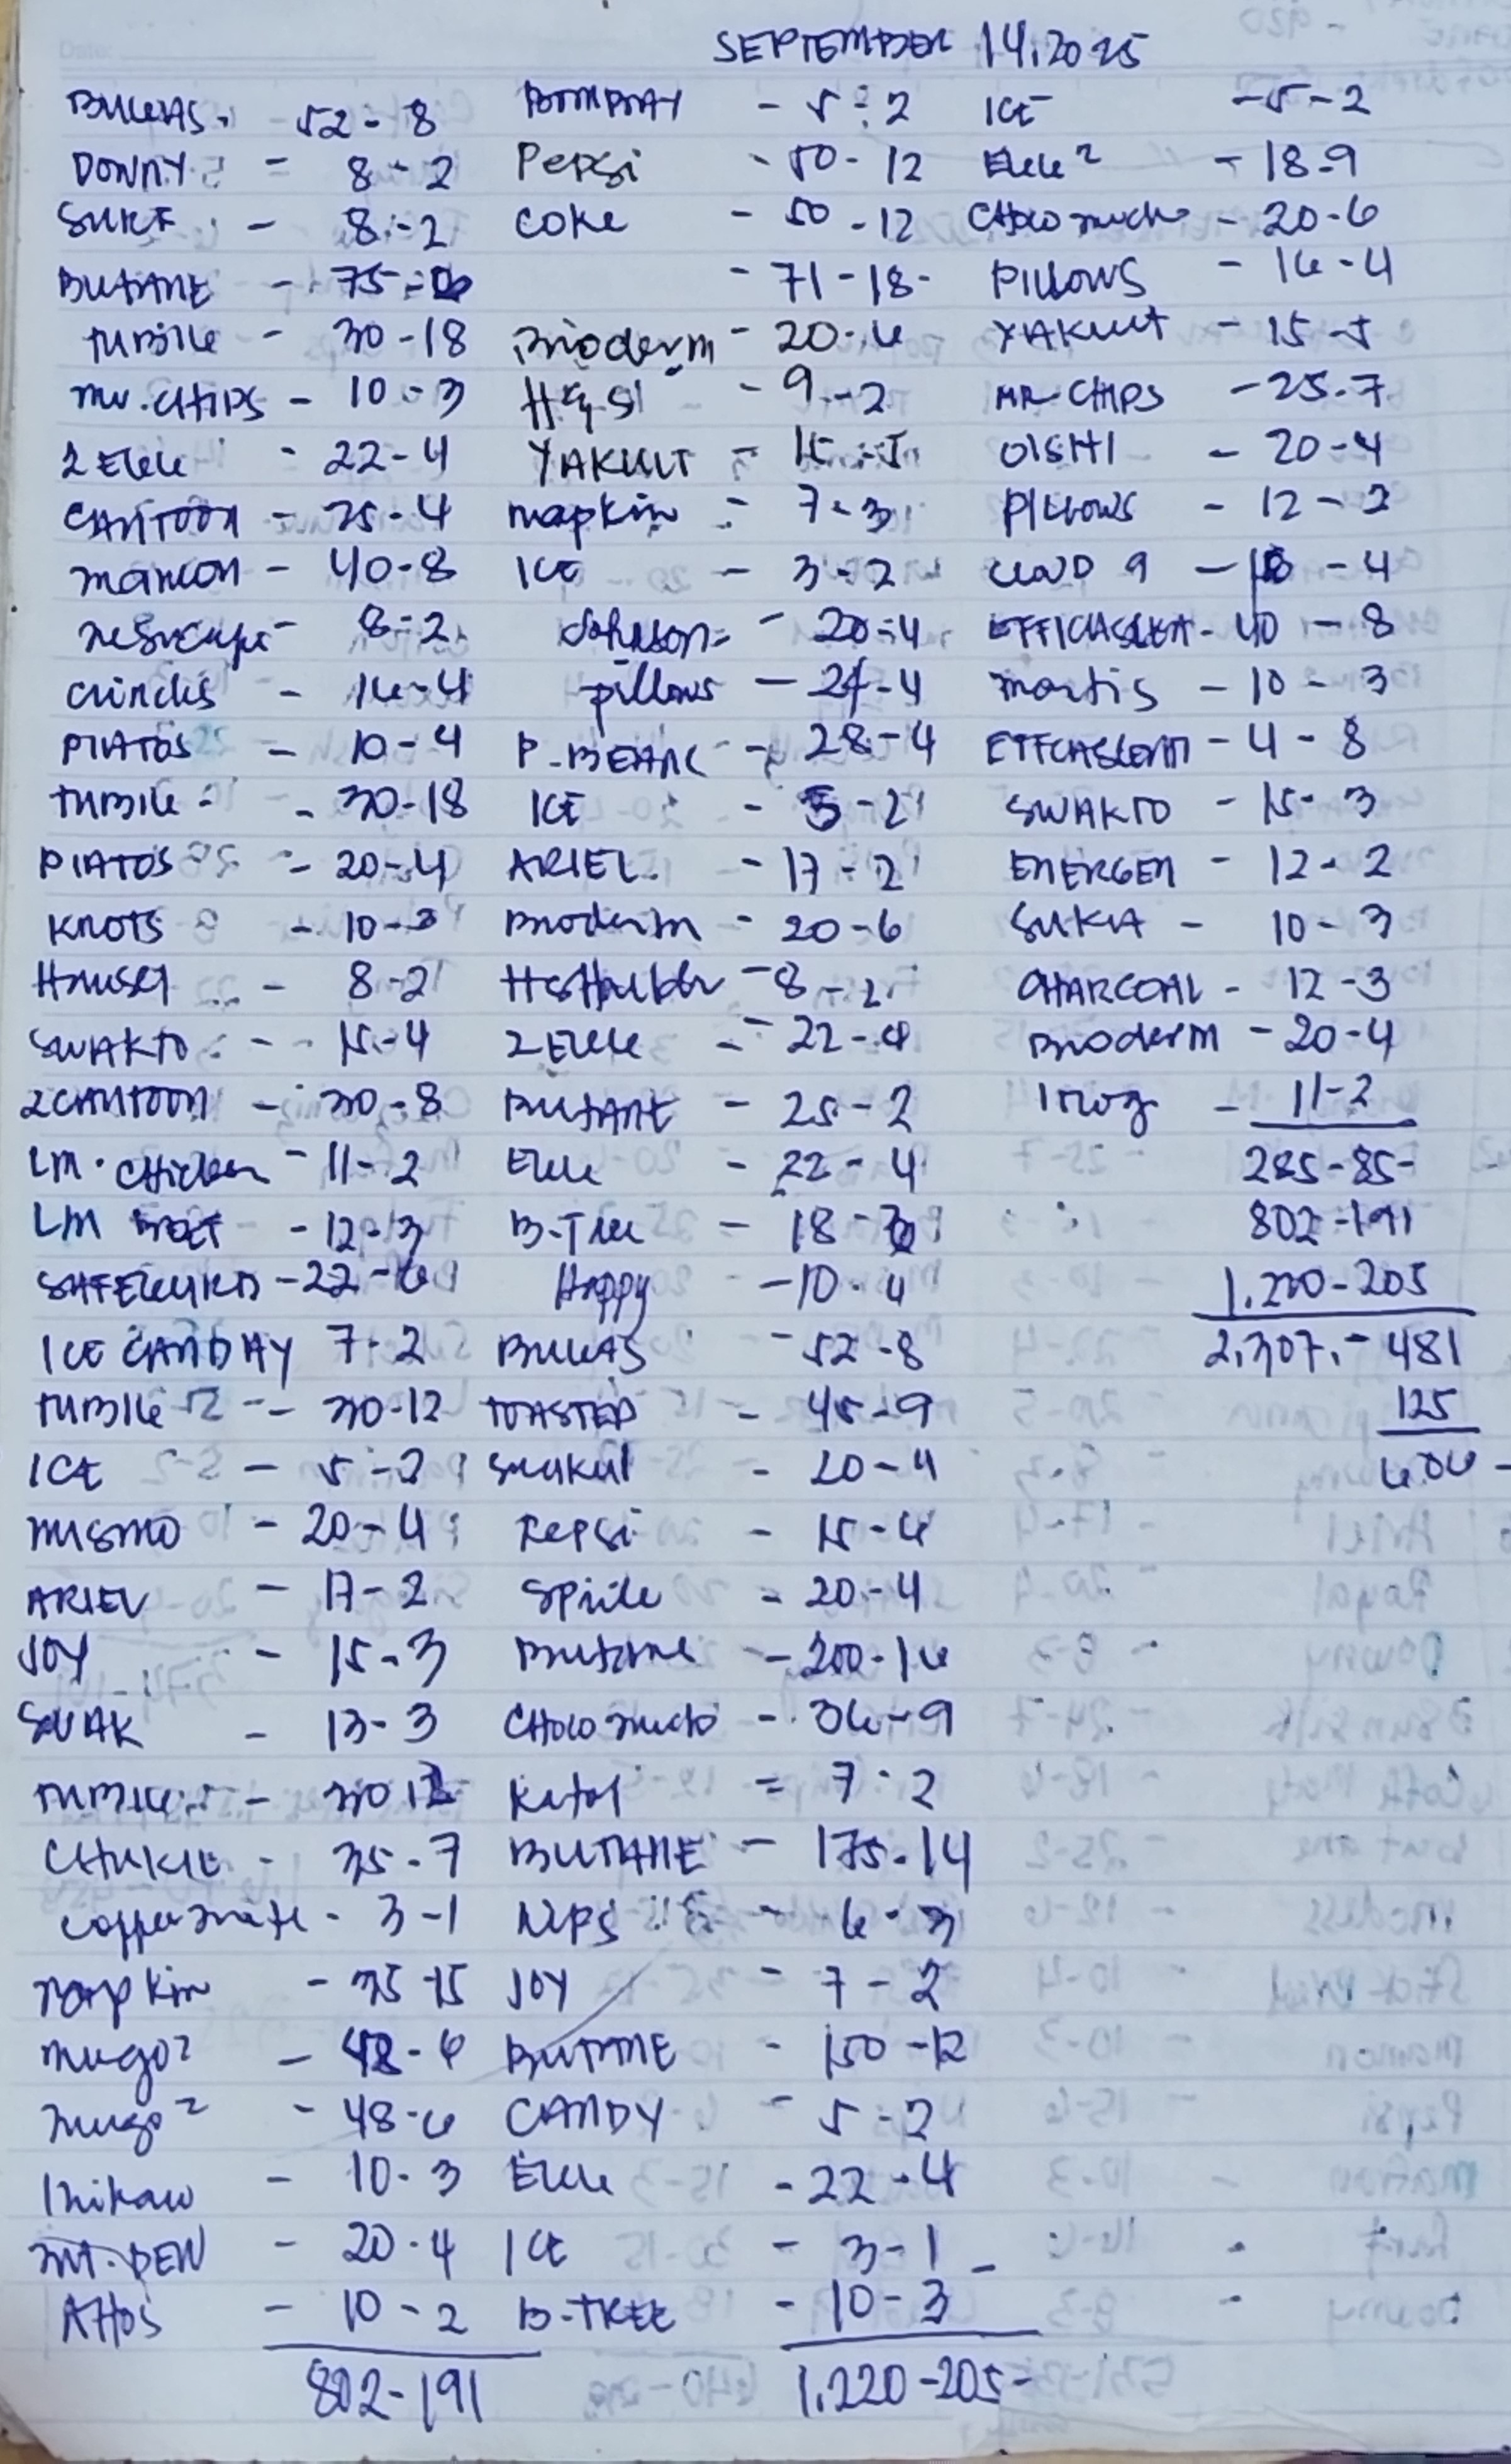 SEPTEMBER 14, 2025
BUKAS - 52 - 8
DOWNY = 8 - 2
SURF - 8 - 2
BUTANE - 75 - 6
TUBIG - 30 - 18
Mr. CHIPS - 10 - 3
2 ELLE - 22 - 4
CANTOON - 25 - 4
mamon - 40 - 8
8 - 2
16 - 4
PIATOS - 10 - 4
TUBIG - 30 - 18
PIATOS - 20 - 4
KNOTS - 10 - 3
8 - 2
SWAKTO - 15 - 4
2 CANTOON - 30 - 8
LM. Chicken - 11 - 2
LM BEEF - 12 - 3
SAFEGUARD - 22 - 6
ICE CANDAY 7 - 2
TUBIG - 30 - 12
ICE - 5 - 2
MISMO - 20 - 4
ARIEL - 17 - 2
JOY - 15 - 3
SUAK - 13 - 3
TUBIG - 30 12
CHUKIE - 35 - 7
coffeemate - 3 - 1
Napkin - 35 - 15
Mugo2 - 48 - 6
Mugo2 - 48 - 6
Inihaw - 10 - 3
MT. DEW - 20 - 4
10 - 2
802 - 191
BOMBAY - 5 - 2
Pepsi - 50 - 12
COKE - 50 - 12
- 71 - 18 -
Bioderm - 20 - 6
H&S - 9 - 2
YAKULT - 15 - 5
napkin - 7 - 3
ICE - 3 - 2
Johnson = - 20 - 4
pillows - 24 - 4
P-BEANC - 28 - 4
ICE - 5 - 2
ARIEL - 17 - 2
Bioderm - 20 - 6
8 - 2
2 ELLE - 22 - 4
BUTANE - 25 - 2
Elle - 22 - 4
B-Tree - 18 - 6
Happy - 10 - 4
BUKAS - 52 - 8
TOASTED - 45 - 9
20 - 4
Pepsi - 15 - 6
Sprite = 20 - 4
Butane - 200 - 16
Choco mucho - 36 - 9
Katol = 7 - 2
BUTANE - 175 - 14
NIPS - 6 - 3
JOY - 7 - 2
BUTANE - 150 - 12
CANDY - 5 - 2
Elle - 22 - 4
ICE - 3 - 1
B-TREE - 10 - 3
1,220 - 205 -
ICE - 5 - 2
Elle2 - 18 - 9
CHoco mucho - 20 - 6
PILLOWS - 16 - 4
YAKULT - 15 - 5
MR. CHIPS - 25 - 7
OISHI - 20 - 4
PILLOWS - 12 - 2
CLOUD 9 - 18 - 4
40 - 8
martis - 10 - 3
4 - 8
SWAKTO - 15 - 3
ENERGEN - 12 - 2
SUKA - 10 - 3
CHARCOAL - 12 - 3
Bioderm - 20 - 4
Itlog - 11 - 2
285 - 85 -
802 - 191
1,220 - 205
2,307. - 481
125
606 -